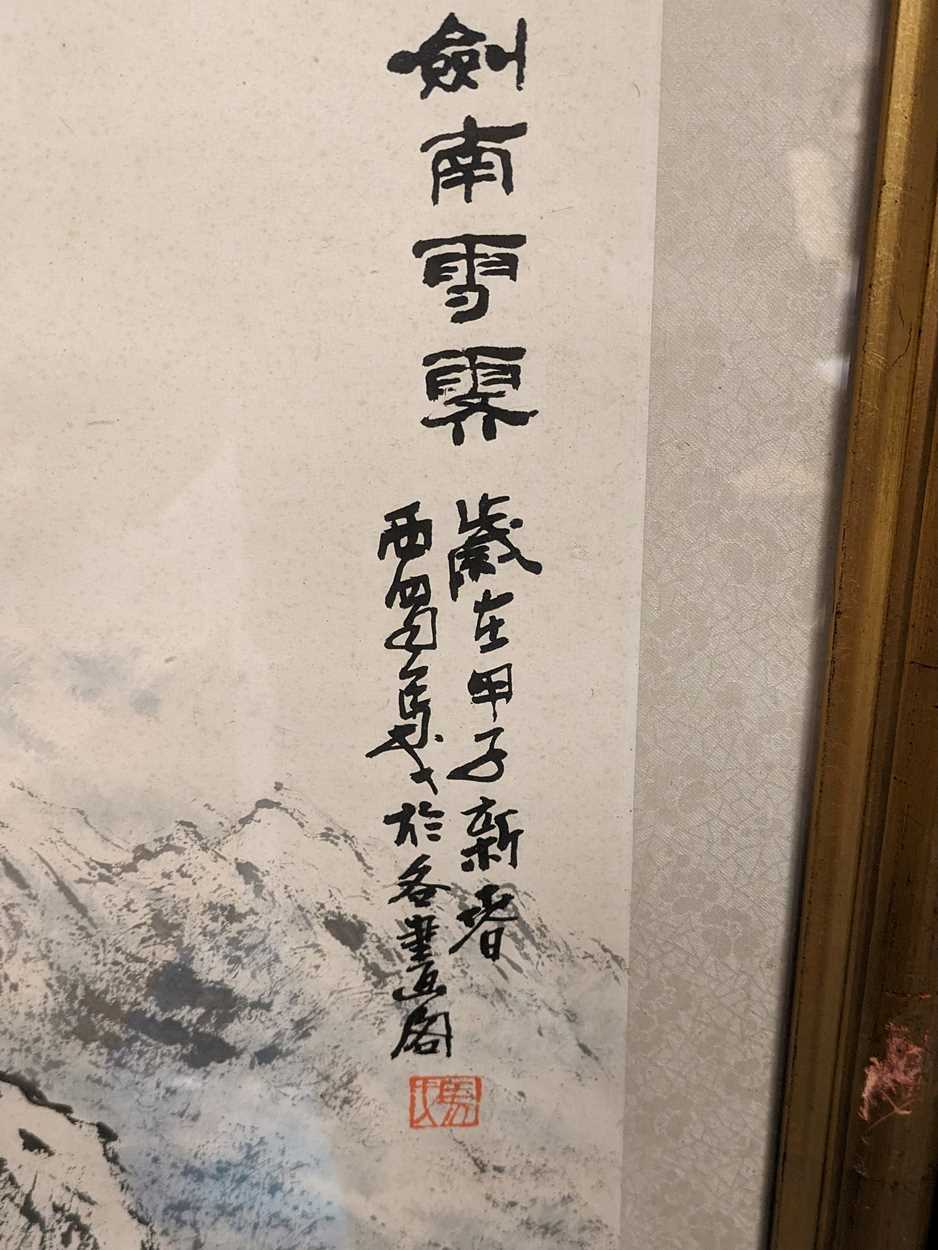 劍南雪霽
歲在甲子新春
西蜀於畫閣